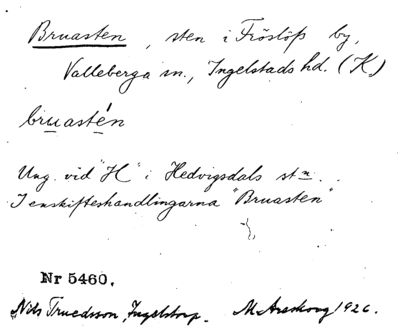 Bruasten, sten i Fröslöfs by,
Valleberga sn., Ingelstads hd. (K)
bruastén
Ung. vid "H" i Hedvigsdals stn.
I enskifteshandlingarna "Bruasten"
Nr 5460.
Nils Truedsson, Ingelstorp. M. Areskoug 1926.